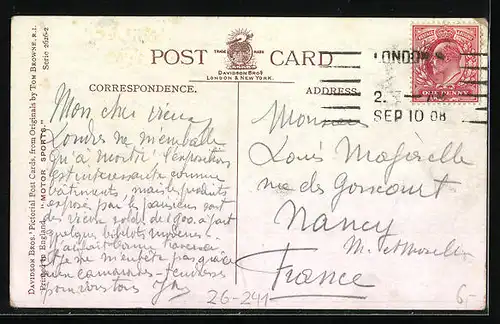 POST CARD
TRADE MARK
DAVIDSON BROS
LONDON & NEW YORK.
CORRESPONDENCE.
ADDRESS
DAVIDSON BROS.' Pictorial Post Cards, from Originals by TOM BROWNE, R.I.
Printed in England. "MOTOR SPORTS."
Serie 2626-2
LONDON
2.
SEP 10 08
ONE PENNY
Mon cher vieux
Londres ne m'emballe
qu'à moitié! l'exposition
est intéressante comme
bâtiments, mais les produits
exposés par le
des vieux soldes de 1900. à part
quelques bibelots
je ne m'embête pas grâce
aux camarades - tendresses
pour vous tous
Monsieur
Louis
rue des Goncourt
Nancy
M. et Moselle
France
26-241
6,-